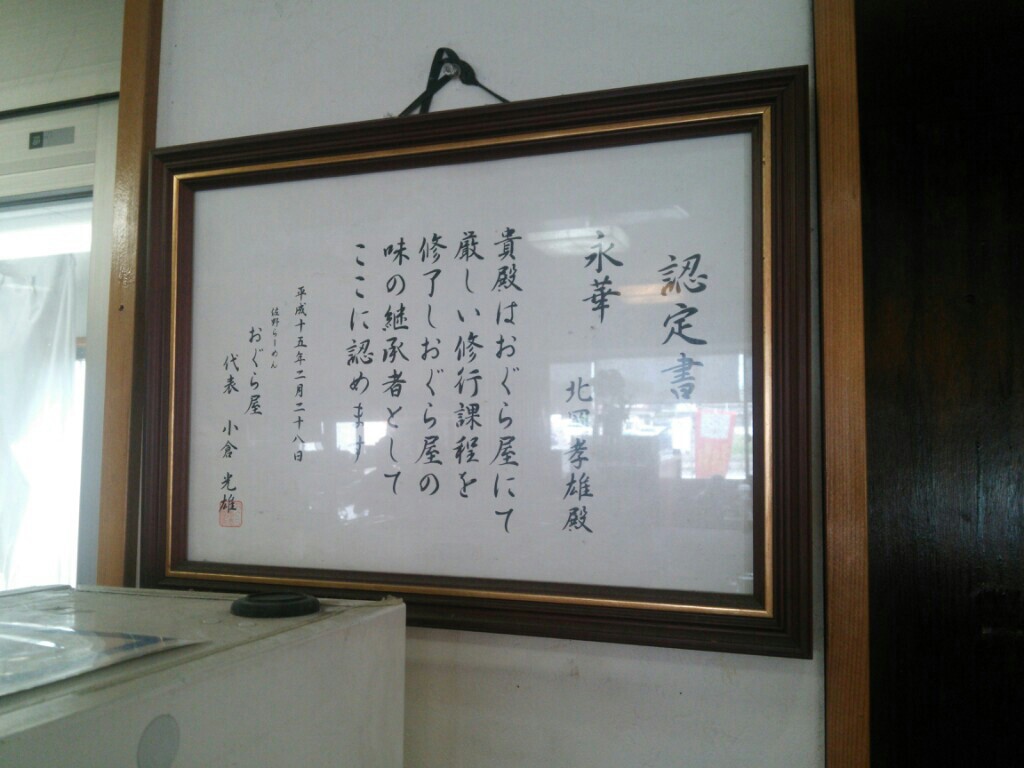 認定書
永華
北岡孝雄殿
貴殿はおぐら屋にて
厳しい修行課程を
修了しおぐら屋の
味の継承者として
ここに認めます
平成十五年二月二十八日
佐野らーめん
おぐら屋
代表 小倉光雄